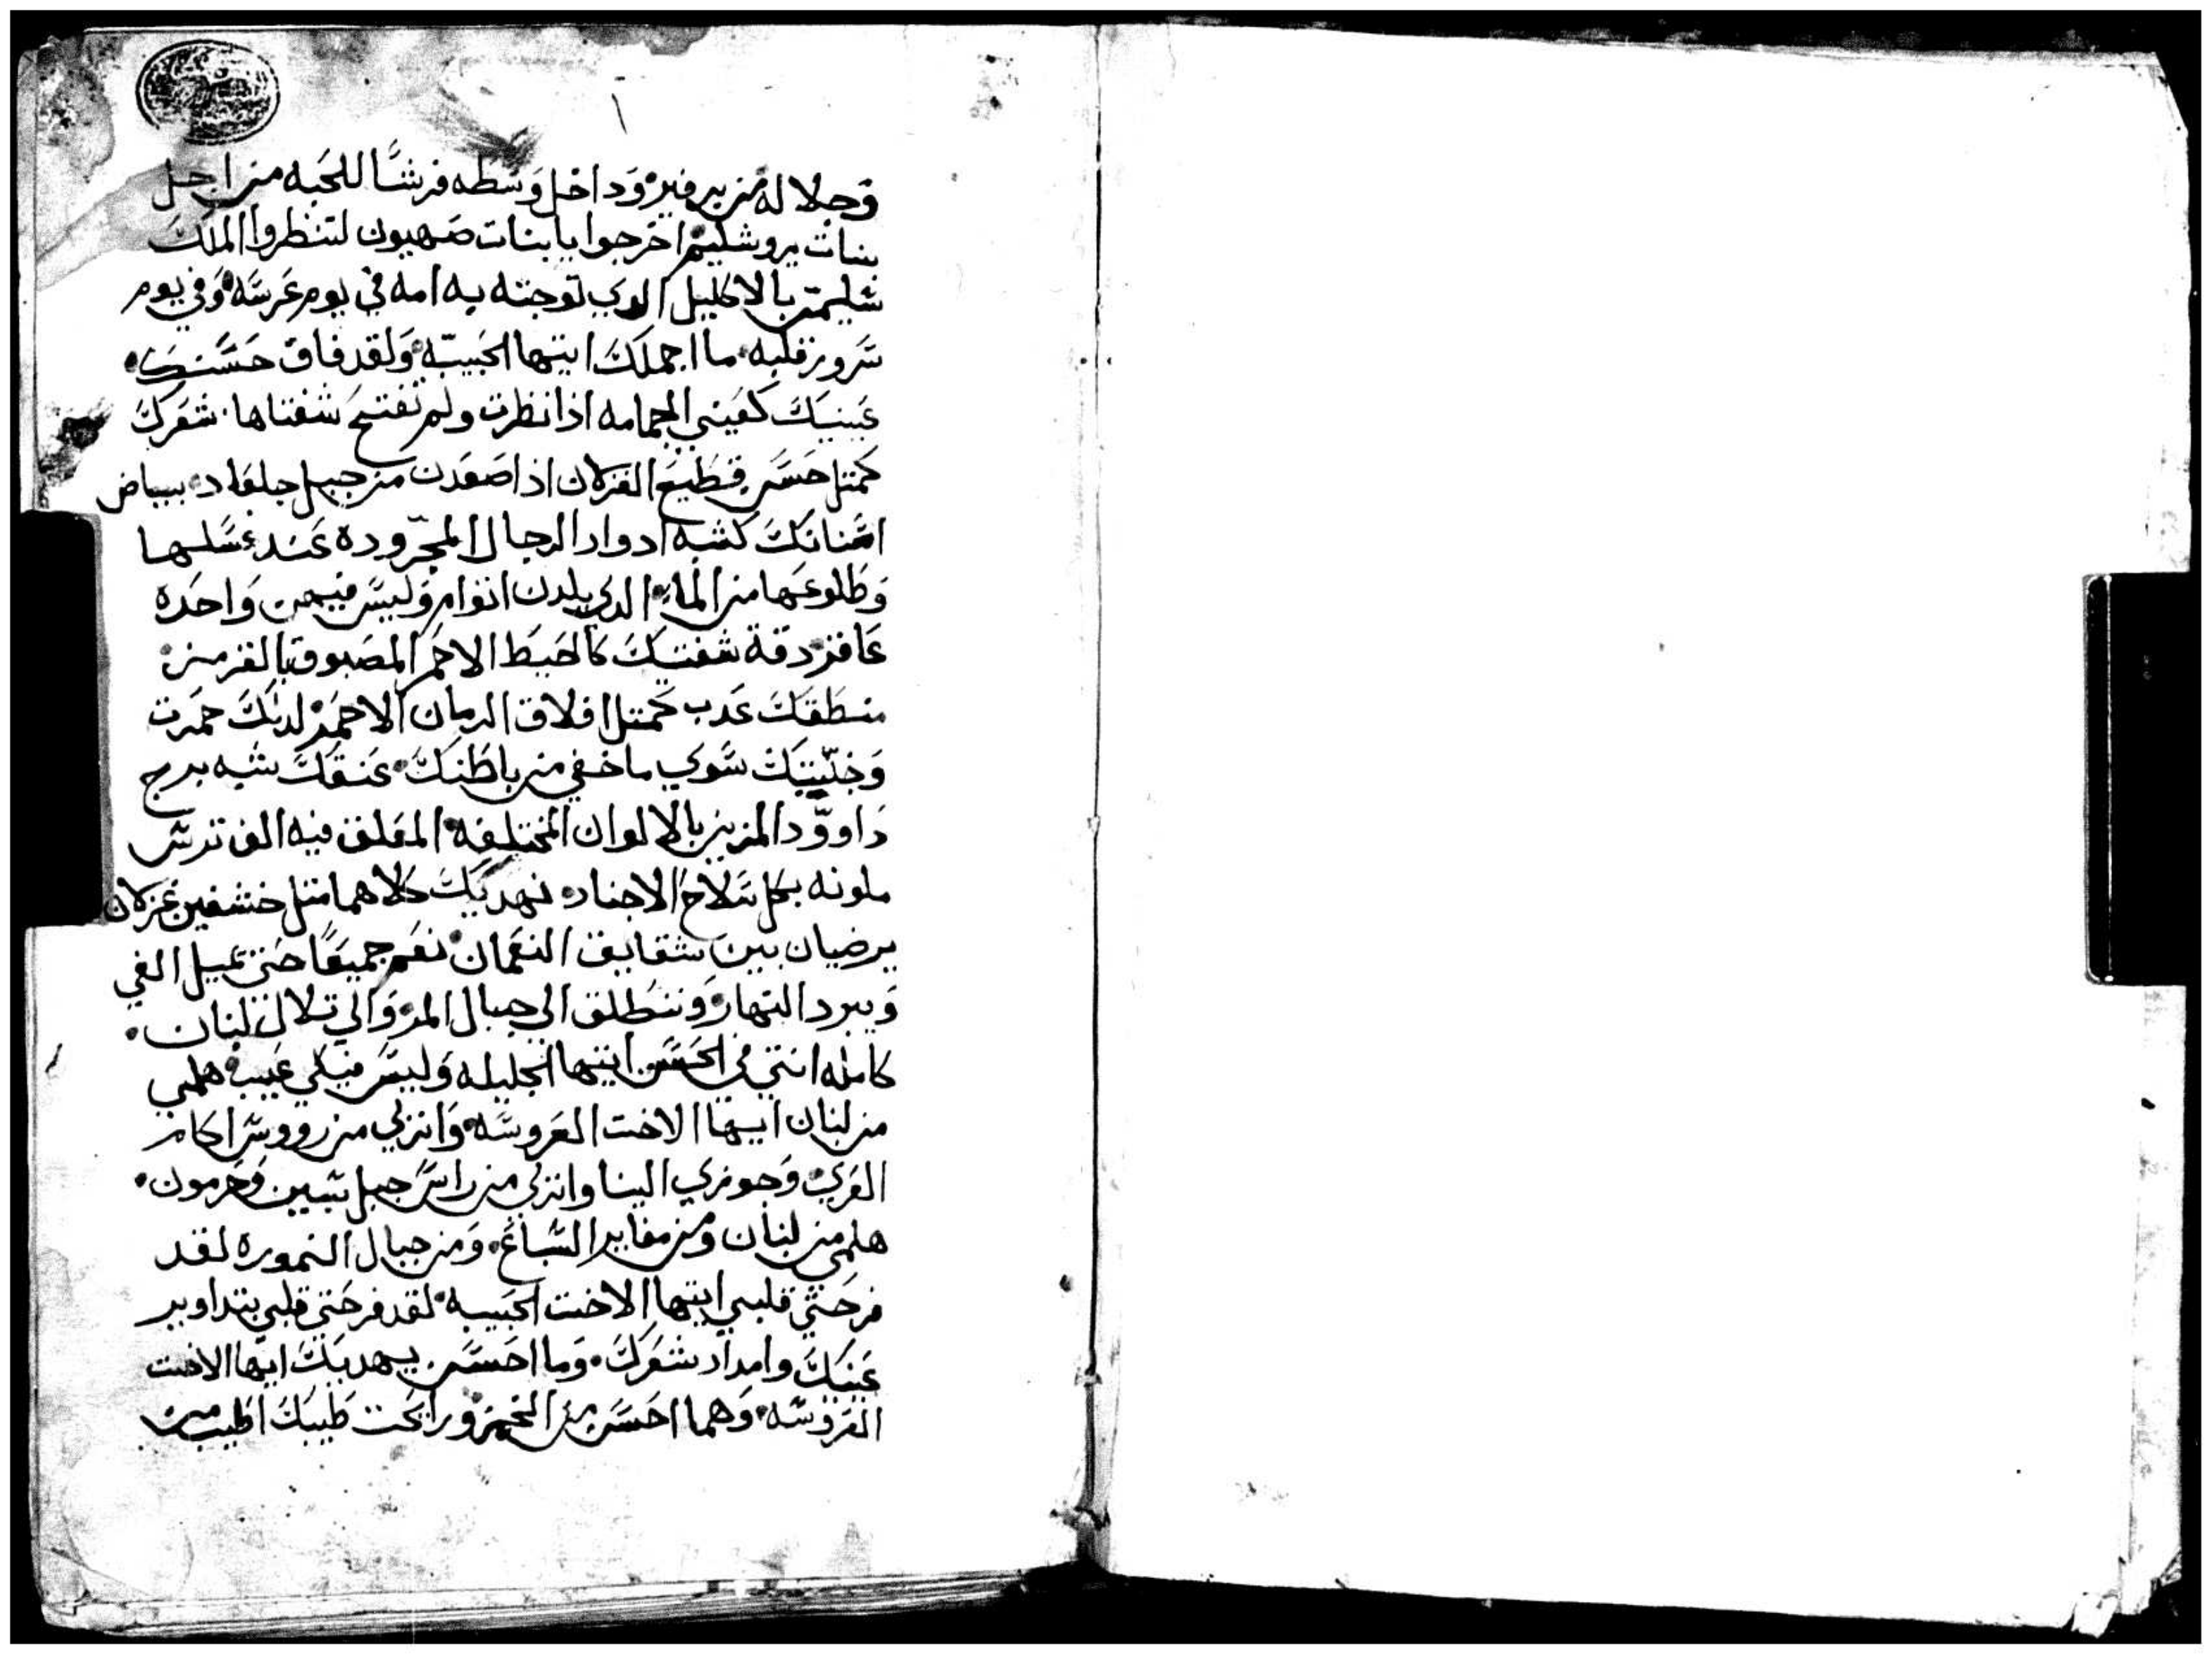 وجلالة من بيرفير وداخل وسطه فرشًا للمحبه من اجل
بنات يروشليم اخرجوا يا بنات صهيون لتنظروا الملك
شليمتن بالاكليل الدي توجته به امه في يوم عرسه وفي يوم
سرور قلبه ما اجملك ايتها الحبيبه ولقد فاق حسنك
عينيك كعيني الحمامه اذا نظرت ولم تفتح شفتاها شعرك
كمتل حسن قطيع الغزلان اذا صعدن من جبل جلعاد بياض
اسنانك كشبه ادوار الرجال المجروده عند غسلها
وطلوعها من الماء الدي يلدن اتوام وليس فيهن واحده
عاقر دقة شفتيك كالخيط الاحمر المصبوق بالقرمز
منطقك عدب كمتل افلاق الرمان الاحمر لدلك حمرت
وجنتيك سوي ما خفي من باطنك عنقك شبه برج
داوود المزين بالالوان المختلفه المعلق فيه الف ترس
ملونه بكل سلاح الاجناد نهديك كلاهما متل خشفين غزلان
يرضيان بين شقايق النعمان نعم جميعًا حتى تميل الفي
ويبرد النهار وننطلق الي جبال المر والي تلال لبنان
كامله انتي في الحسن ايتها الجليله وليس فيكي عيب هلمي
من لبنان ايها الاخت العروسه وانزلي من رووس اكام
العري وجوزي الينا وانزلي من راس جبل سين وحرمون
هلمي من لبنان ومن مغاير السباع ومن جبال النموره لقد
فرحتي قلبي ايتها الاخت الحبيبه لقد فرحتي قلبي بتداوير
عينك وامداد شعرك وما احسن يهديك ايها الاخت
العروسه وهما احسن من الخمر ورايحت طيبك اطيب من